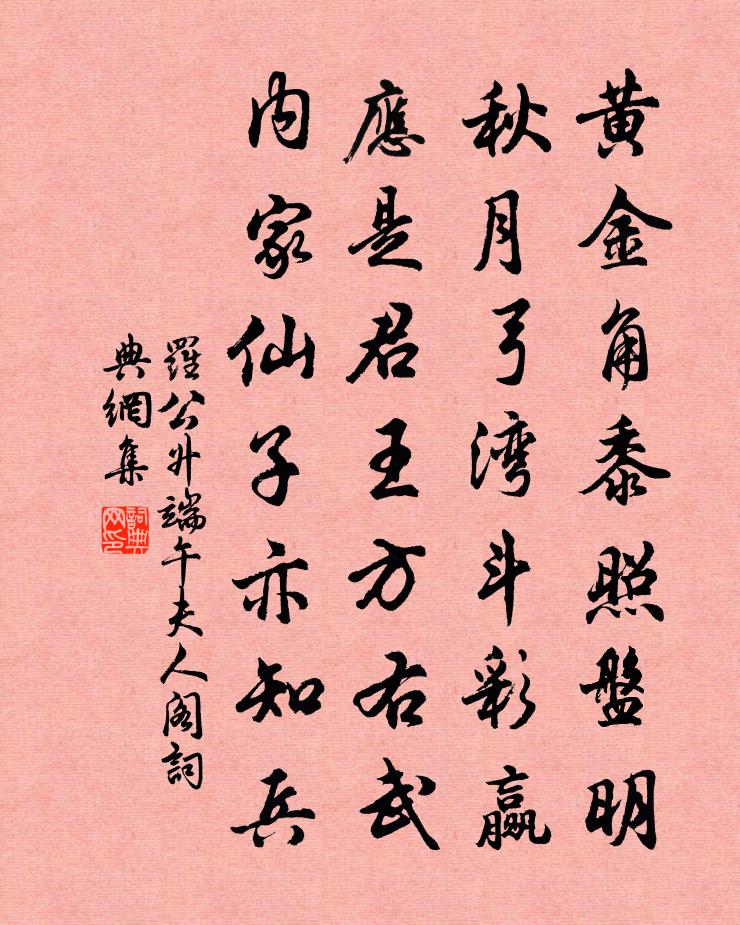 黄金角黍照盤明
秋月弓湾斗彩贏
應是君王方右武
内家仙子亦知兵
羅公升端午夫人阁詞
典網集
詞典网印